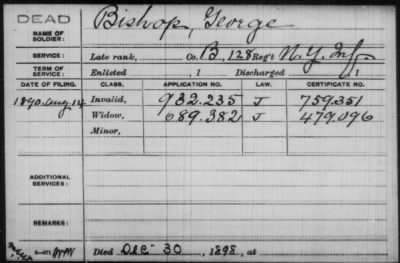 DEAD
NAME OF SOLDIER: Bishop, George
SERVICE: Late rank, Co. B, 128 Reg't N.Y. Inf
TERM OF SERVICE: Enlisted , 1 Discharged , 1
DATE OF FILING. CLASS. APPLICATION NO. LAW. CERTIFICATE NO.
1890. Aug. 14 Invalid, 932.235 J 759.351
Widow, 689.382 J 479.096
Minor,
ADDITIONAL SERVICES:
REMARKS:
Died Dec 30, 1898, at